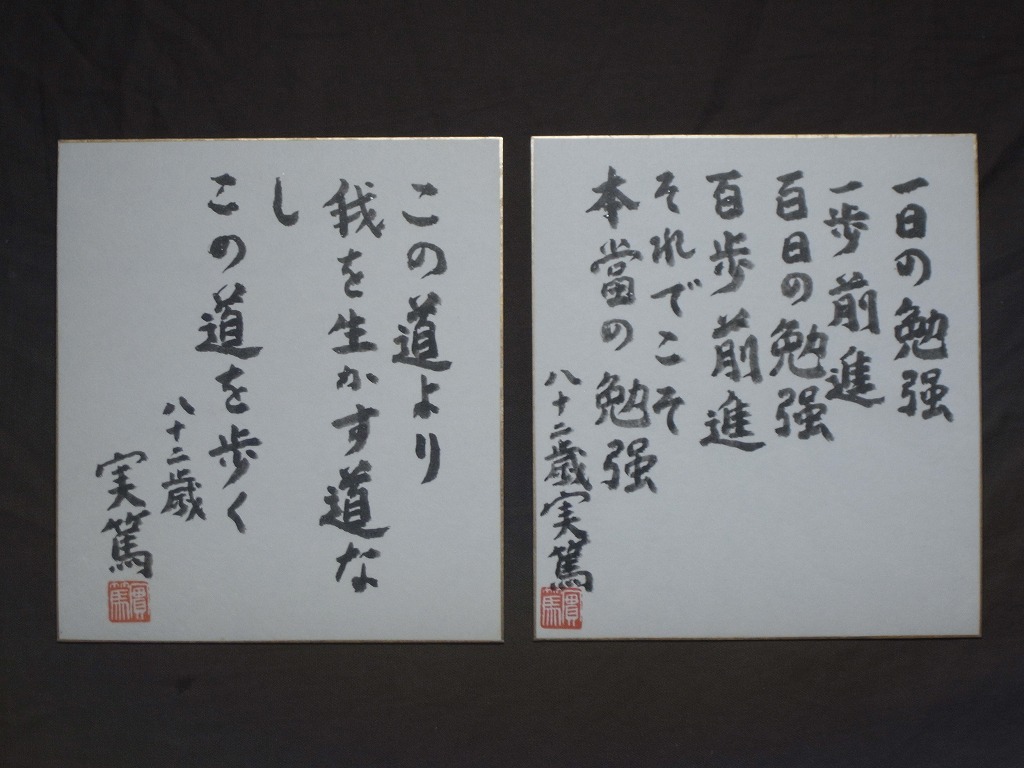 一日の勉强
一歩前進
百日の勉强
百歩前進
それでこそ
本當の勉强
八十二歳実篤
實篤
この道より
我を生かす道な
し
この道を歩く
八十二歳
実篤
實篤